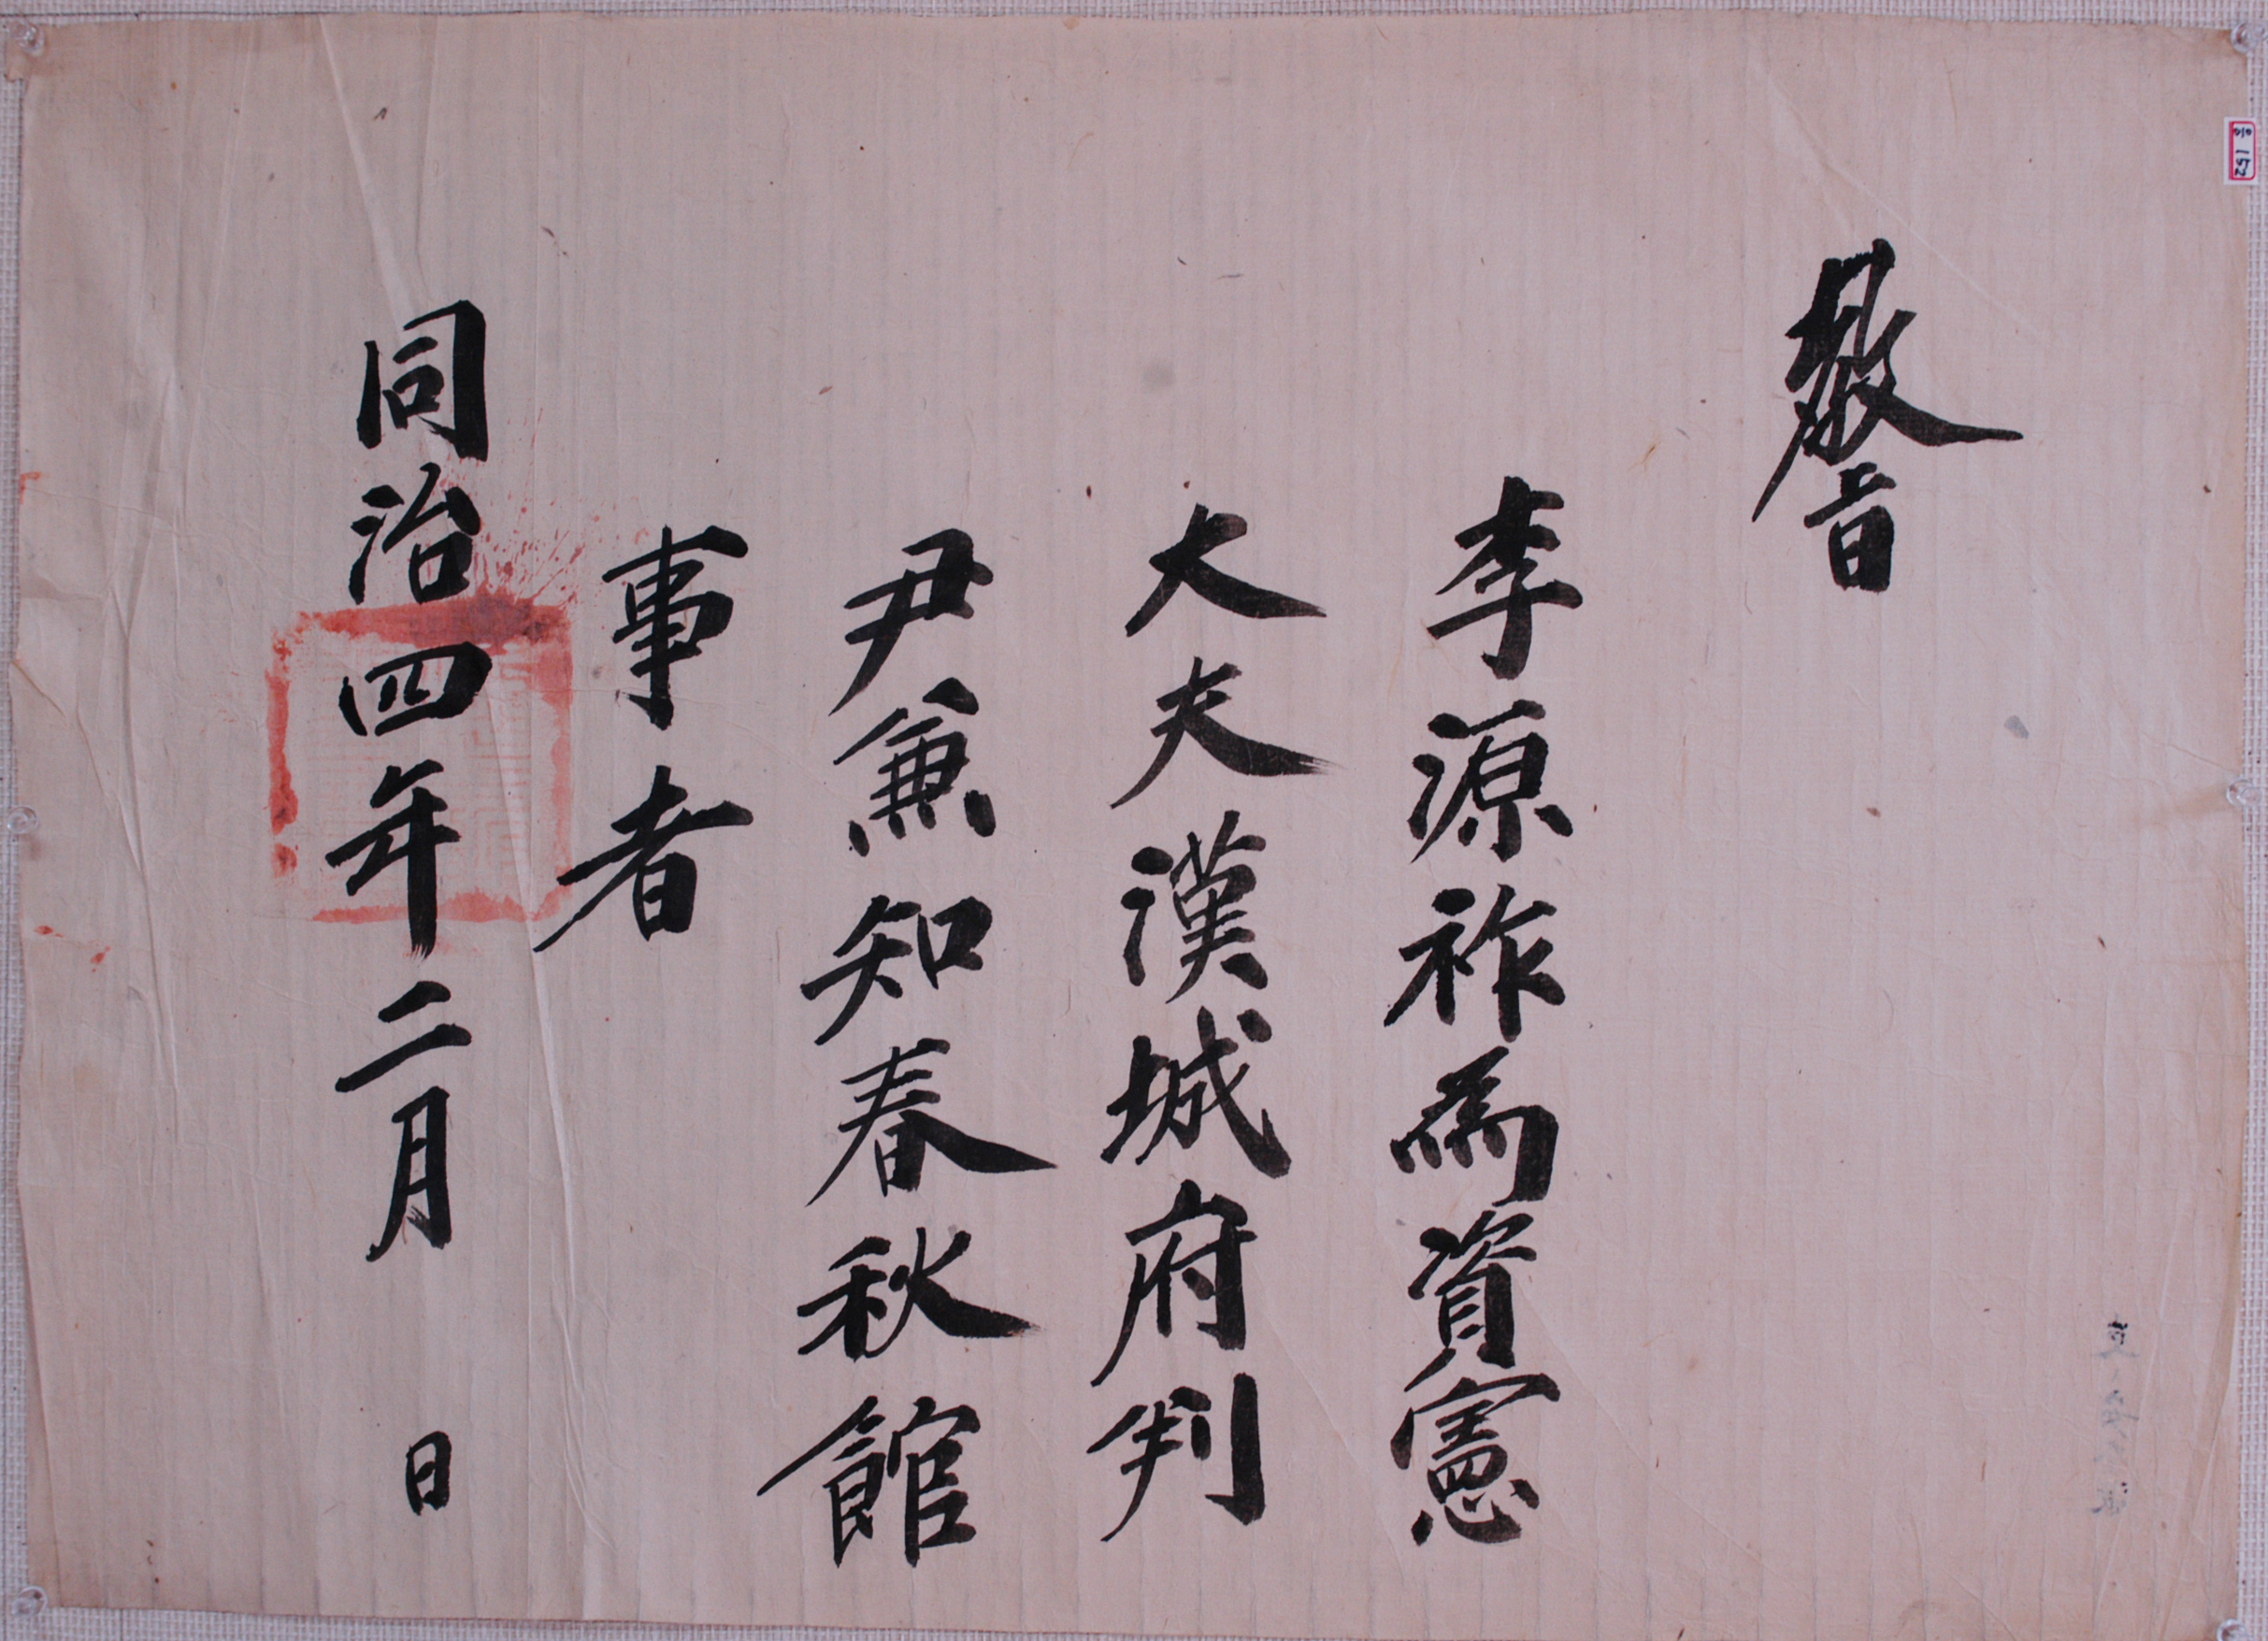 敎旨
李源祚爲資憲
大夫漢城府判
尹兼知春秋館
事者
同治四年二月 日
152